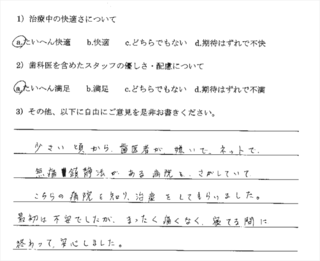 1) 治療中の快適さについて
a.たいへん快適 b.快適 c.どちらでもない d.期待はずれで不快
2) 歯科医を含めたスタッフの優しさ・配慮について
a.たいへん満足 b.満足 c.どちらでもない d.期待はずれで不満
3) その他、以下に自由にご意見を是非お書きください。
小さい頃から、歯医者が嫌いで、ネットで、
無痛 鎮静法が ある病院を、さがしていて
こちらの病院を知り、治療をしてもらいました。
最初は不安でしたが、まったく痛くなく、寝てる間に
終わって、安心しました。